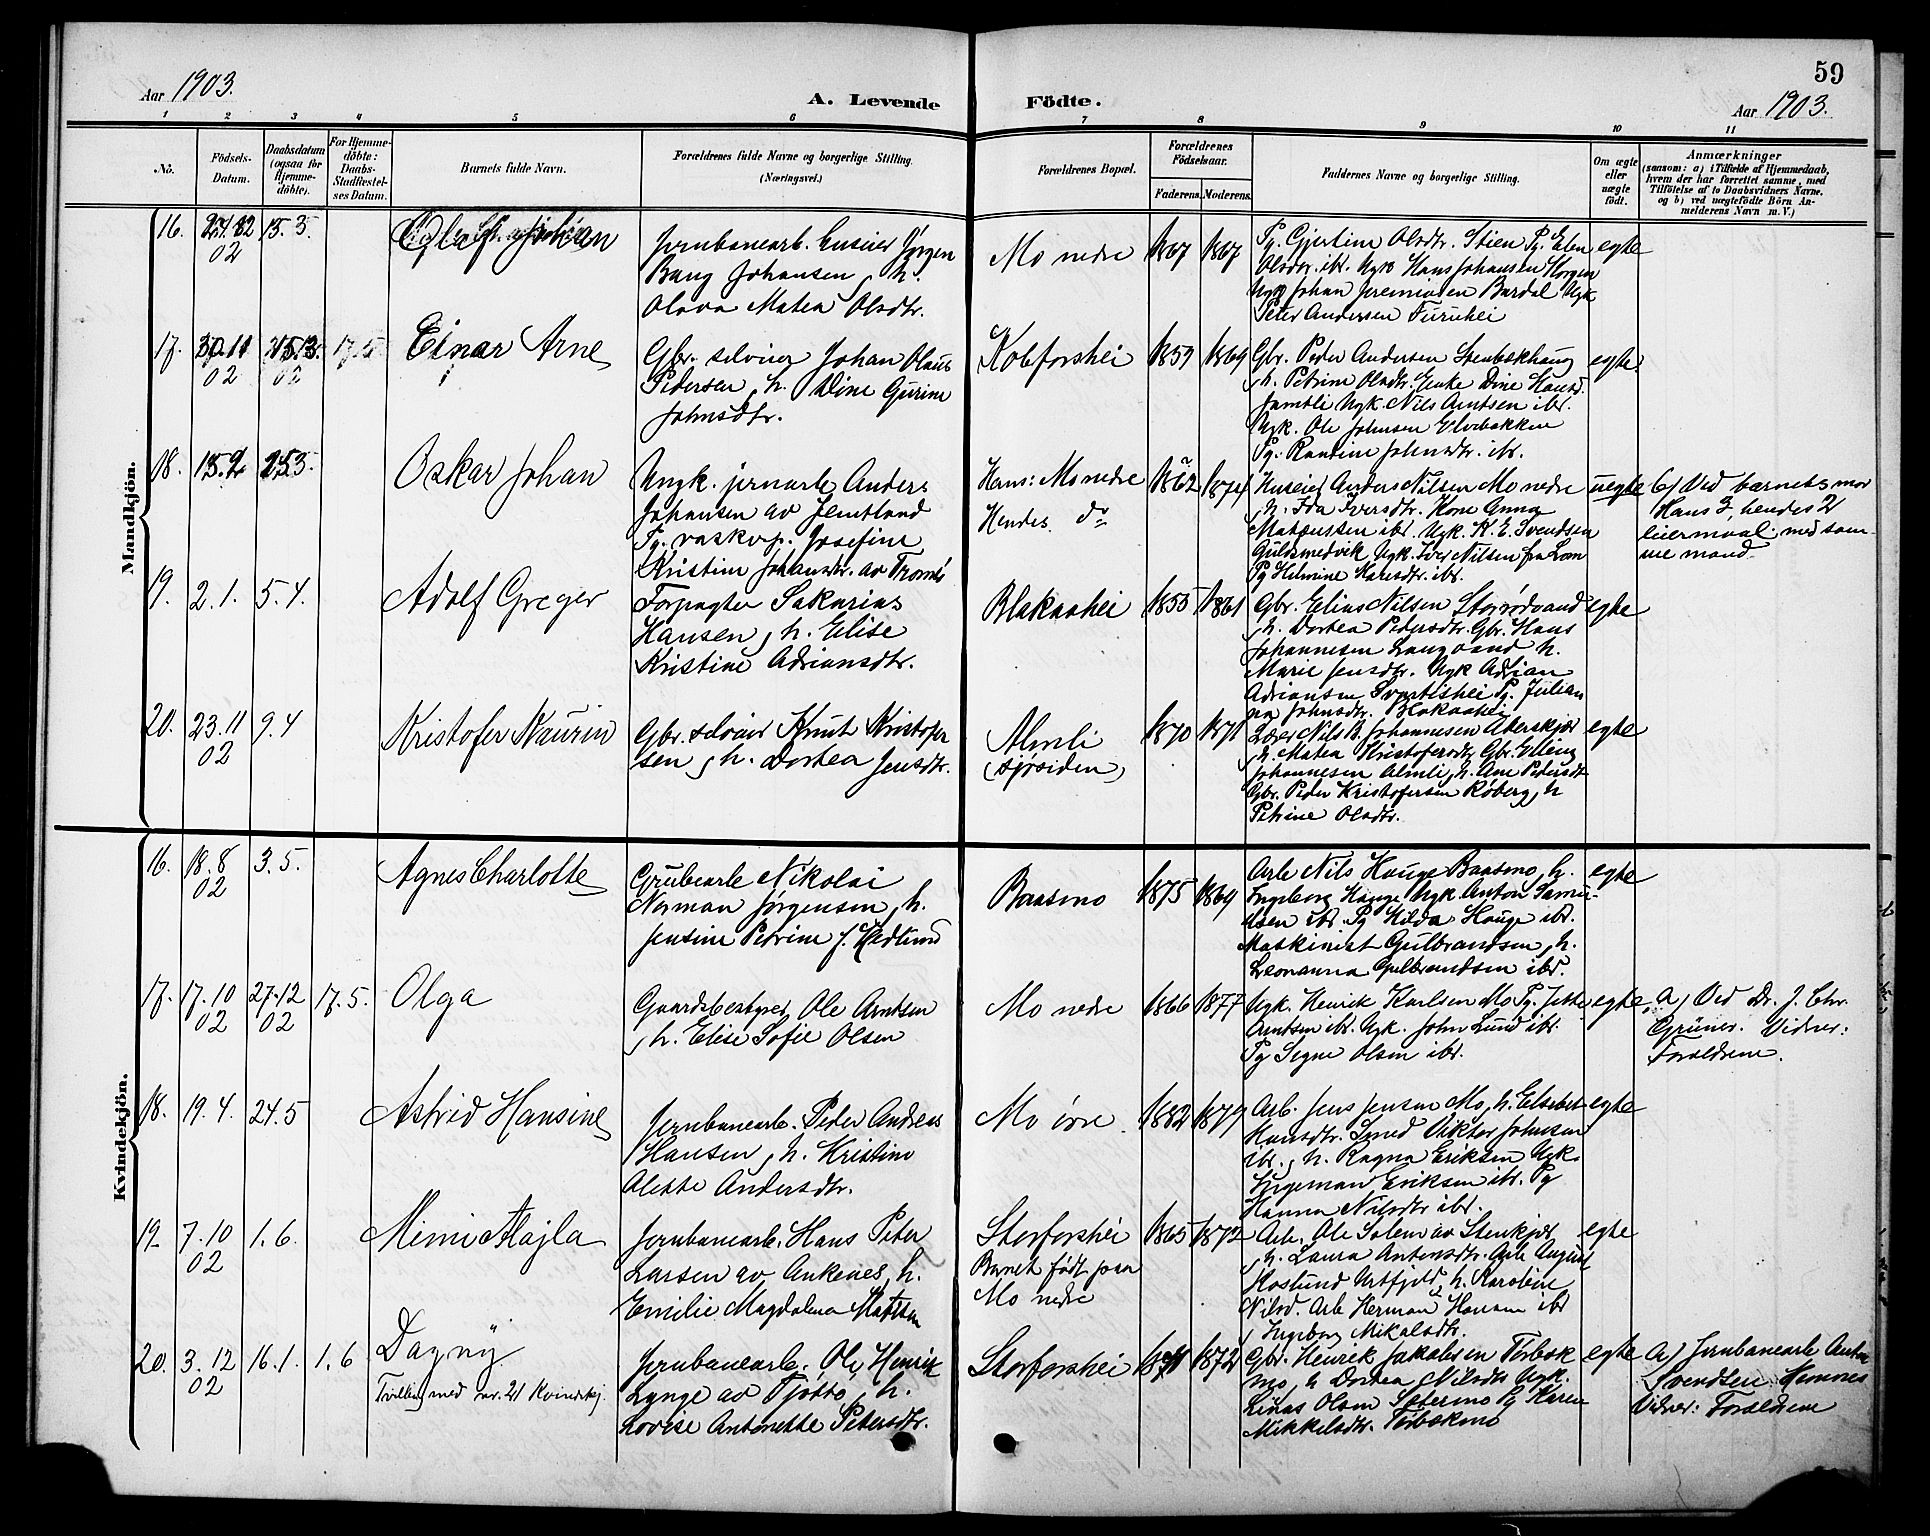 59
Aar 1903.
A. Levende Födte.
Aar 1903.
1 2 3 4 5 6 7 8 9 10 11
No.
Födsels-
Datum.
Daabsdatum
(ogsaa for
Hjemme-
döbte).
For Hjemme-
döbte:
Daabs-
Stadfæstel-
ses Datum.
Barnets fulde Navn.
Forældrenes fulde Navne og borgerlige Stilling.
(Næringsvei.)
Forældrenes Bopæl.
Forældrenes
Födselsaar.
Faderens.
Moderens.
Faddernes Navne og borgerlige Stilling.
Om ægte
eller
uægte
født.
Anmærkninger
(saasom: a) i Tilfælde af Hjemmedaab,
hvem der har forrettet samme, med
Tilföielse af to Daabsvidners Navne,
og b) ved uægtefödte Börn An-
melderens Navn m. V.)
Mandkjön.
16.
02
15.3.
Olaf Johan
Jernbanearb. Insider Jørgen
Bang Johansen, h.
Olava Matea Olsdtr.
Mo nedre
1867
1867
Pg. Gjertine Olsdtr. Stien Pg. Elen
Olsdtr. ibr. Ugk Hans Johansen Horgen
Ugk Johan Jeremiasen Bardal Ugk
Peter Andersen Furuhei
egte
17.
30.11
02
17.5
Einar Arne
Gbr. selveier Johan Olaus
Pedersen, h. Dine Gurine
Johnsdtr.
Kobforshei
1859
1869
Gbr. Peder Andersen Stenbekhaug
, h. Petrine Olsdtr. Enke Dine Hansd.
Jamtli Ugk. Nils Arntsen ibr.
Ugk. Ole Johnsen Elvebakken
Pg. Rantine Johnsdtr. ibr.
egte
18.
15.2
Oskar Johan
Ungk. jernarb Anders
Johansen av Jemtland
Pg. vaskep. Josefine
Kristine Johansdtr. av Tromsø
Hans: Mo nedre
Hendes. do
1862
1874
Huseier Anders Nilsen Mo nedre
, h. Ida Iversdtr. Kone Anna
Mateussen ibr. Ugk. K. E. Svendsen
Guldsmedvik Ugk. Iver Nilsen fra Lom
Pg Helmine Haresdtr. ibr.
uegte
b) Ved barnets mor
Hans 3, hendes 2
leiermaal med sam-
me mand.
19.
2.1.
5.4.
Adolf Greger
Forpagter Sakarias
Hansen, h. Elise
Kristine Adriansdtr.
Blakaahei
1855
1861
Gbr. Elias Nilsen Storrødvand
, h. Dortea Pedersdtr. Gbr. Hans
Johannesen Langvand h.
Marie Jensdtr. Ugk Adrian
Adriansen Svartishei Pg. Julian
na Johnsdtr. Blakaahei
egte
20.
23.11
02
9.4
Kristofer Naurin
Gbr. selveier Knut Kristofer
sen, h. Dortea Jensdtr.
Almli
(sjøsiden)
1870
1871
Lærer Nils B. Johannesen Alterskjær
, h. Matea Kristofersdtr Gbr. Elling
Johannesen Almli, h. Ane Pedersdt
Gbr. Peder Kristofersen Røberg, h
Petrine Olsdtr.
egte
Kvindekjön.
16.
18.8
02
3.5.
Agnes Charlotte
Grubearb Nikolai
Norman Jørgensen, h.
Jensine Petrine f. Hedlund
Baasmo
1875
1869
Arb Nils Hauge Baasmo, h.
Ingeborg Hauge Ugk. Anton Samu-
elsen ibr. Pg Hilda Hauge ibr.
Maskinist Gulbrandsen, h.
Leonanna Gulbrandsen ibr.
egte
17.
17.10
02
27.12
02
17.5.
Olga
Gaardsbestyrer Ole Arntsen
, h. Elise Sofie Olsen
Mo nedre
1866
1877
Ugk. Henrik Karlsen Mo Pg. Jette
Arntsen ibr. Ugk. John Lund ibr.
Pg Signe Olsen ibr.
egte
a) Ved Dr. J. Chr.
Grüner. Vidner:
Forældrene.
18.
19.4.
24.5
Astrid Hansine
Jernbanearb. Peder Andreas
Hansen, h. Kristine
Alette Andersdtr.
Mo øvre
1882
1879
Arb. Jens Jensen Mo, h. Elsebet
Hansdtr. Smed Viktor Johnsen
ibr., h. Ragna Eriksen Ugk.
Ingeman Eriksen ibr. Pg
Hanna Nilsdtr ibr.
egte
19.
7.10
02
1.6.
Mimi Majla
Jernbanearb. Hans Peter
Larsen av Ankenes, h.
Emilie Magdalena Matisen
Storforshei
Barnet født paa
Mo nedre
1865
1872
Arb. Ole Solem av Stenkjær
, h. Laura Antonsdtr. Arb August
Hoslund Urtfjeld, h. Karoline
Nilsd. Arb Herman Hansen ibr
, Ingeborg Mikalsdtr.
egte
20.
3.12
02
16.1.
1.6
Dagny
Tvilling med nr. 21 Kvindekj.
Jernbanearb. Ole Henrik
Lynge av Tjøtto, h.
Lovise Antonette Petersdtr.
Storforshei
1871
1872
Gbr. Henrik Jakobsen Terbek
mo, h Dortea Nilsdtr Ugk.
Linas Olsen Setermo Pg Karen
Mikkelsdtr. Terbekmo
egte
a) Jernbanearb Anton
Svendsen Hemnes
Vidner: Forældrene